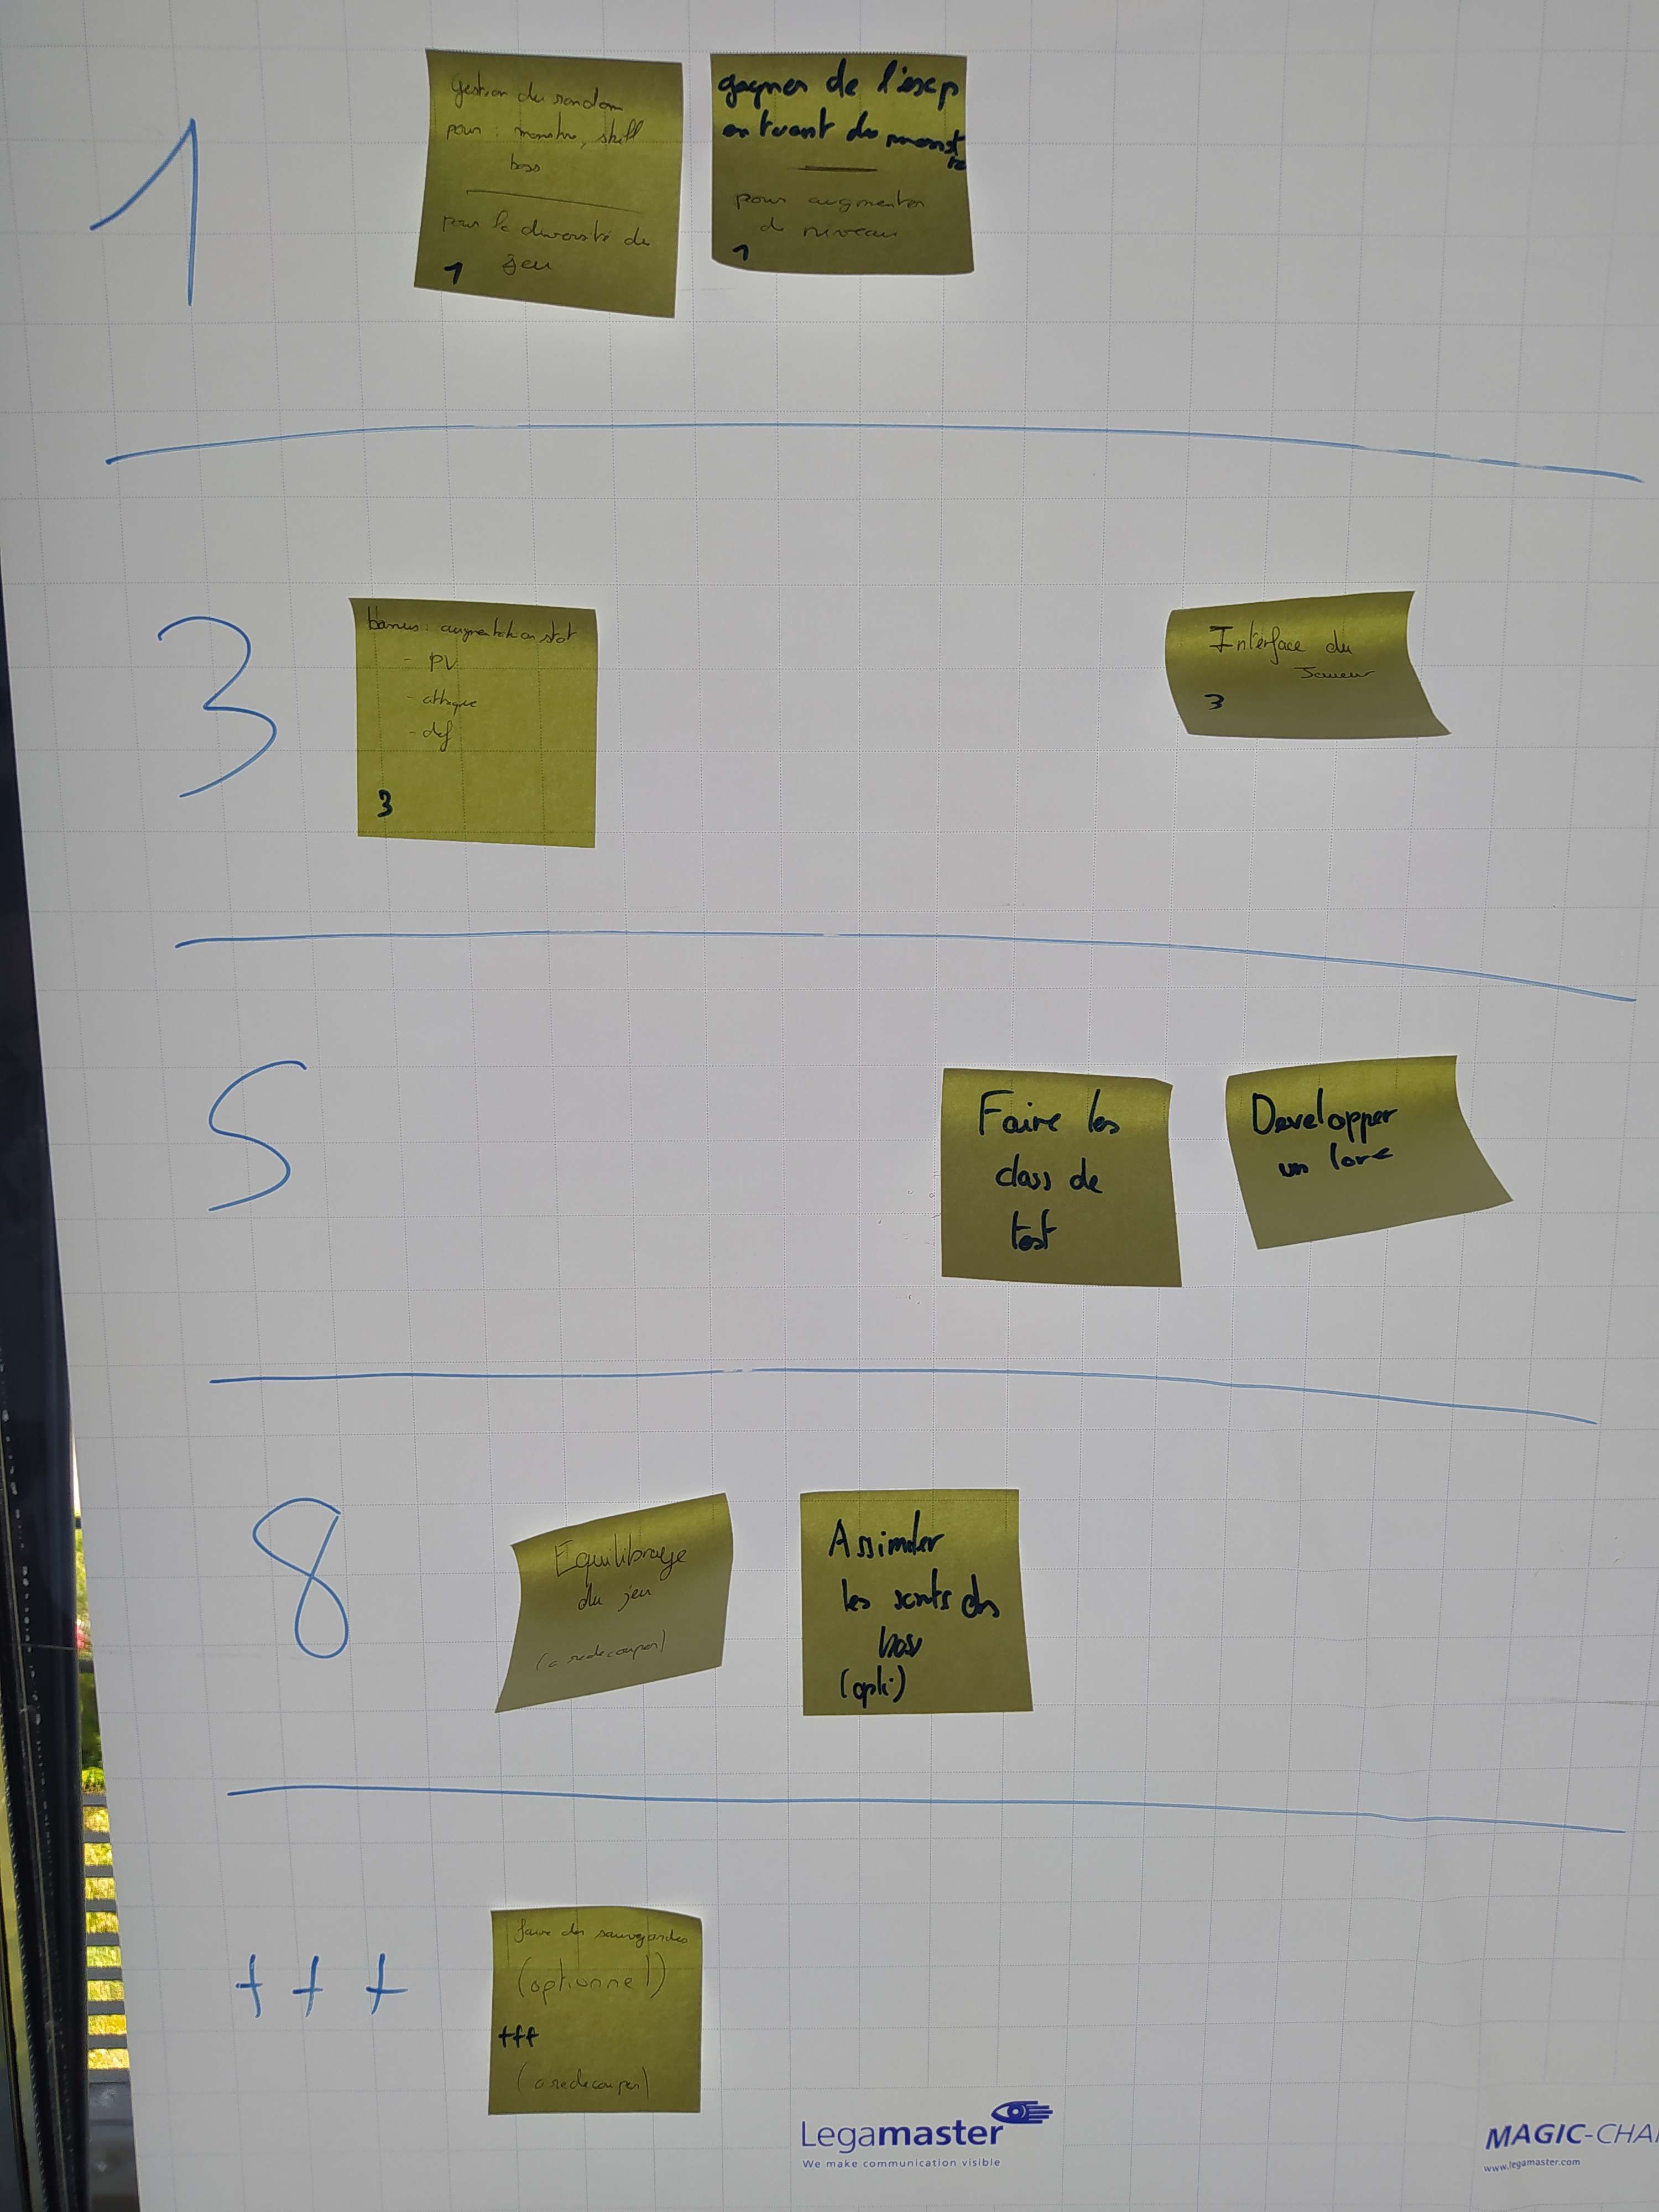 1
gestion du random
pour : monstre, skill
boss
pour la diversité du
jeu
1
gagner de l'exp
en tuant du monst
re
pour augmenter
de niveau
1
3
bonus : augmentation stat
- PV
- attaque
- def
3
Interface du
Joueur
3
5
Faire les
class de
test
Developper
un lore
8
Equilibrage
du jeu
(a redecouper)
Assimiler
les des
boss
(opti)
+++
faire des sauvegardes
(optionnel)
+++
(a redecouper)
Legamaster
We make communication visible
MAGIC-CHA
www.legamaster.com